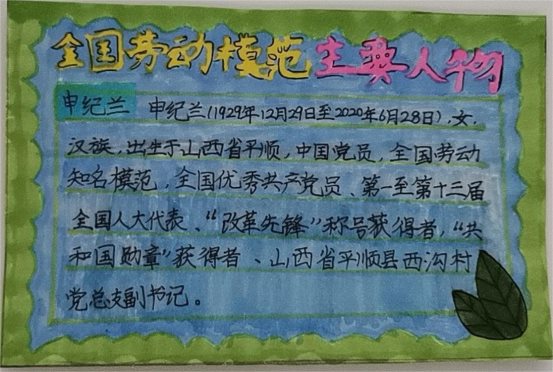 全国劳动模范主要人物
申纪兰 申纪兰(1929年12月29日至2020年6月28日),女,
汉族,出生于山西省平顺,中国党员,全国劳动
知名模范,全国优秀共产党员、第一至第十三届
全国人大代表、“改革先锋”称号获得者,“共
和国勋章”获得者、山西省平顺县西沟村
党总支副书记。